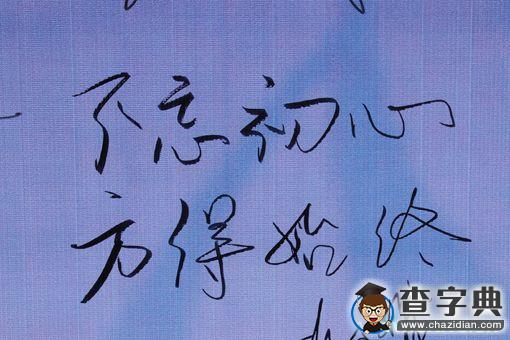 不忘初心
方得始终
查字典
www.chazidian.com